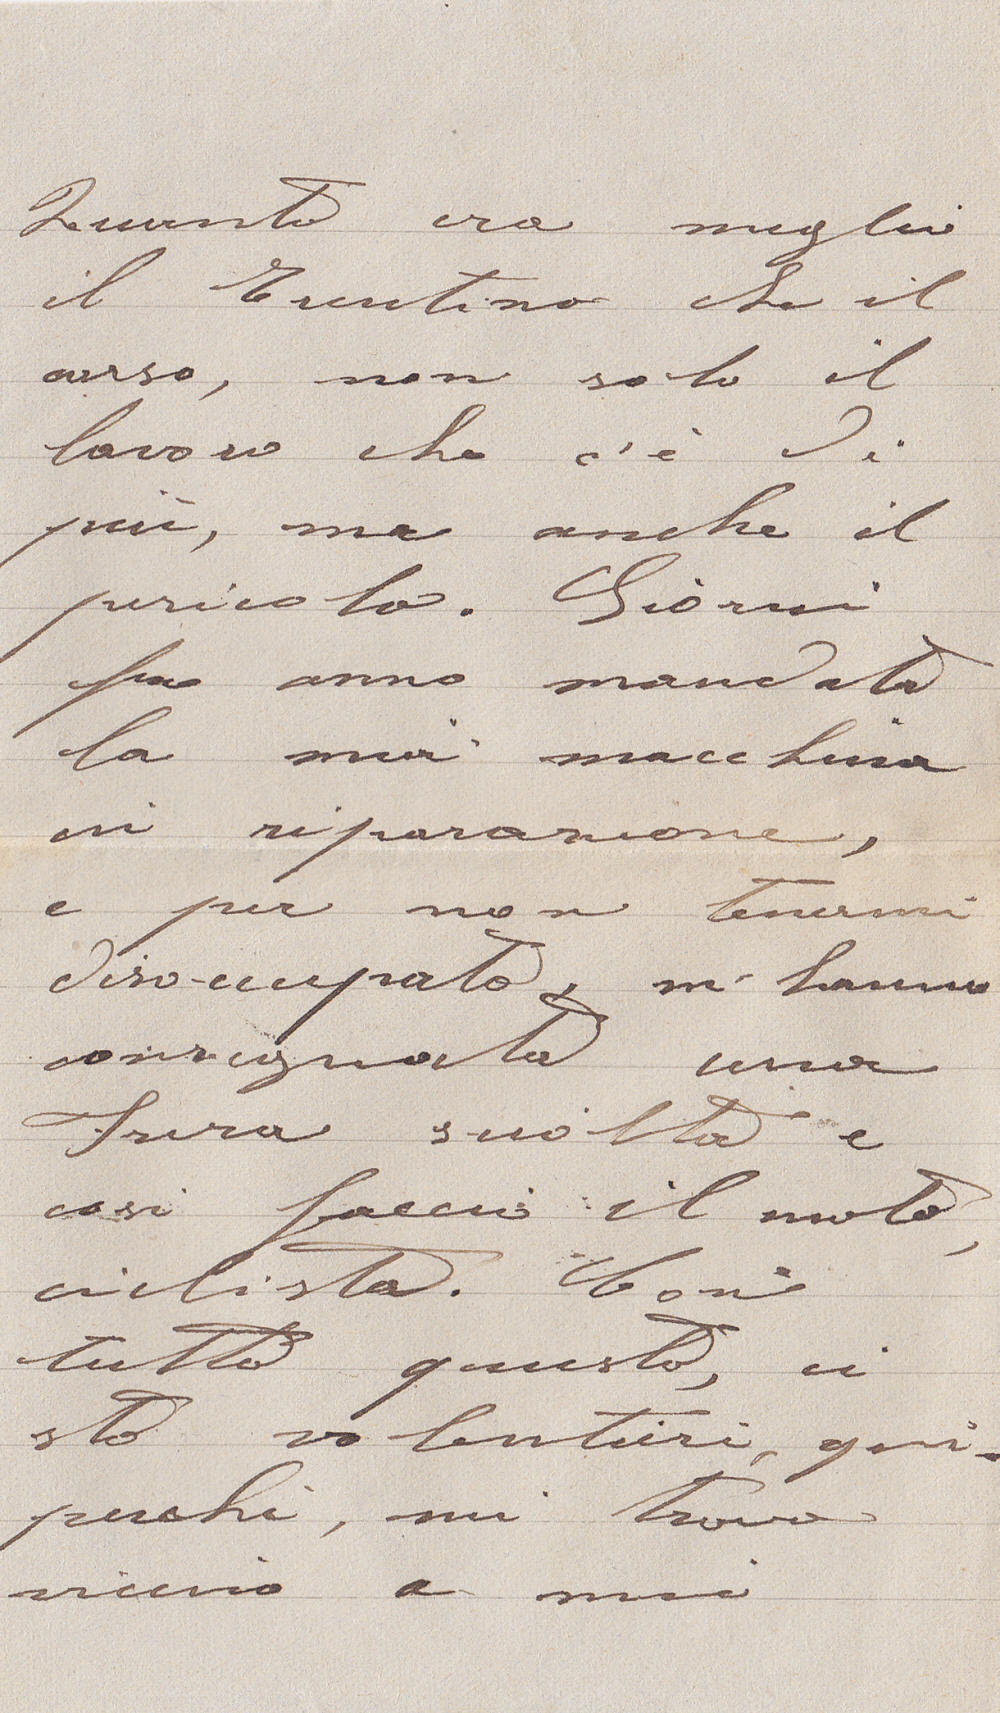 Quanto era meglio
il Trentino che il
carso, non solo il
lavoro che c'è di
più, ma anche il
pericolo. Giorni
fa anno mandata
la mia macchina
in riparazione,
e per non tenermi
disoccupato, m'hanno
consegnata una
Frera sciolta e
così faccio il moto,
ciclista. Con
tutto questo, ci
sto volentieri, qui
perchè, mi trovo
vicino a mei